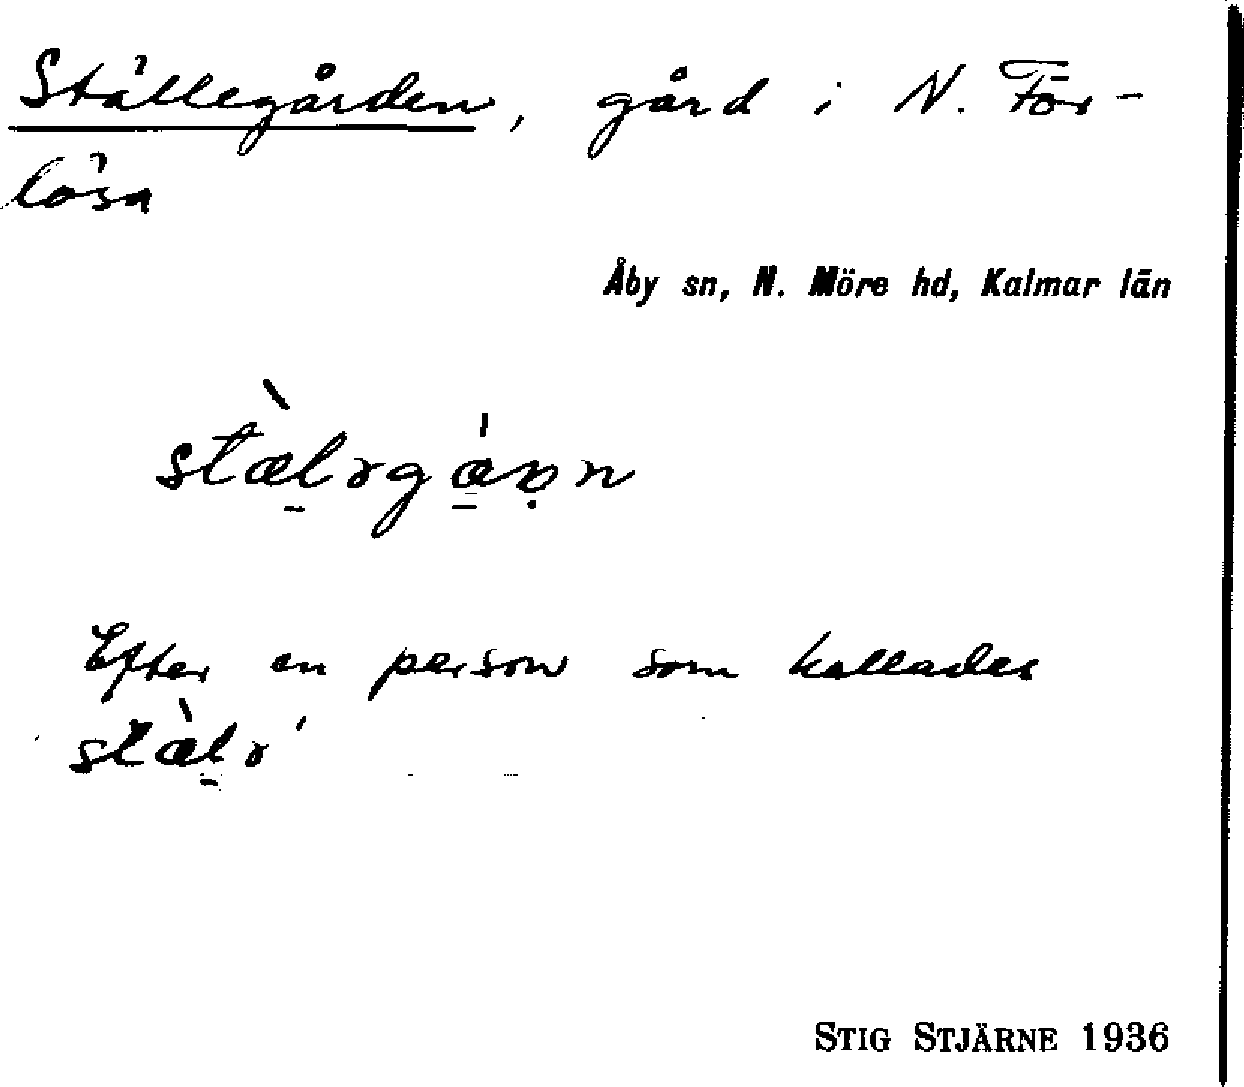 Ställegården, gård i N. För-
lösa
Åby sn, N. Möre hd, Kalmar län
Efter en person som kallades
STIG STJÄRNE 1936